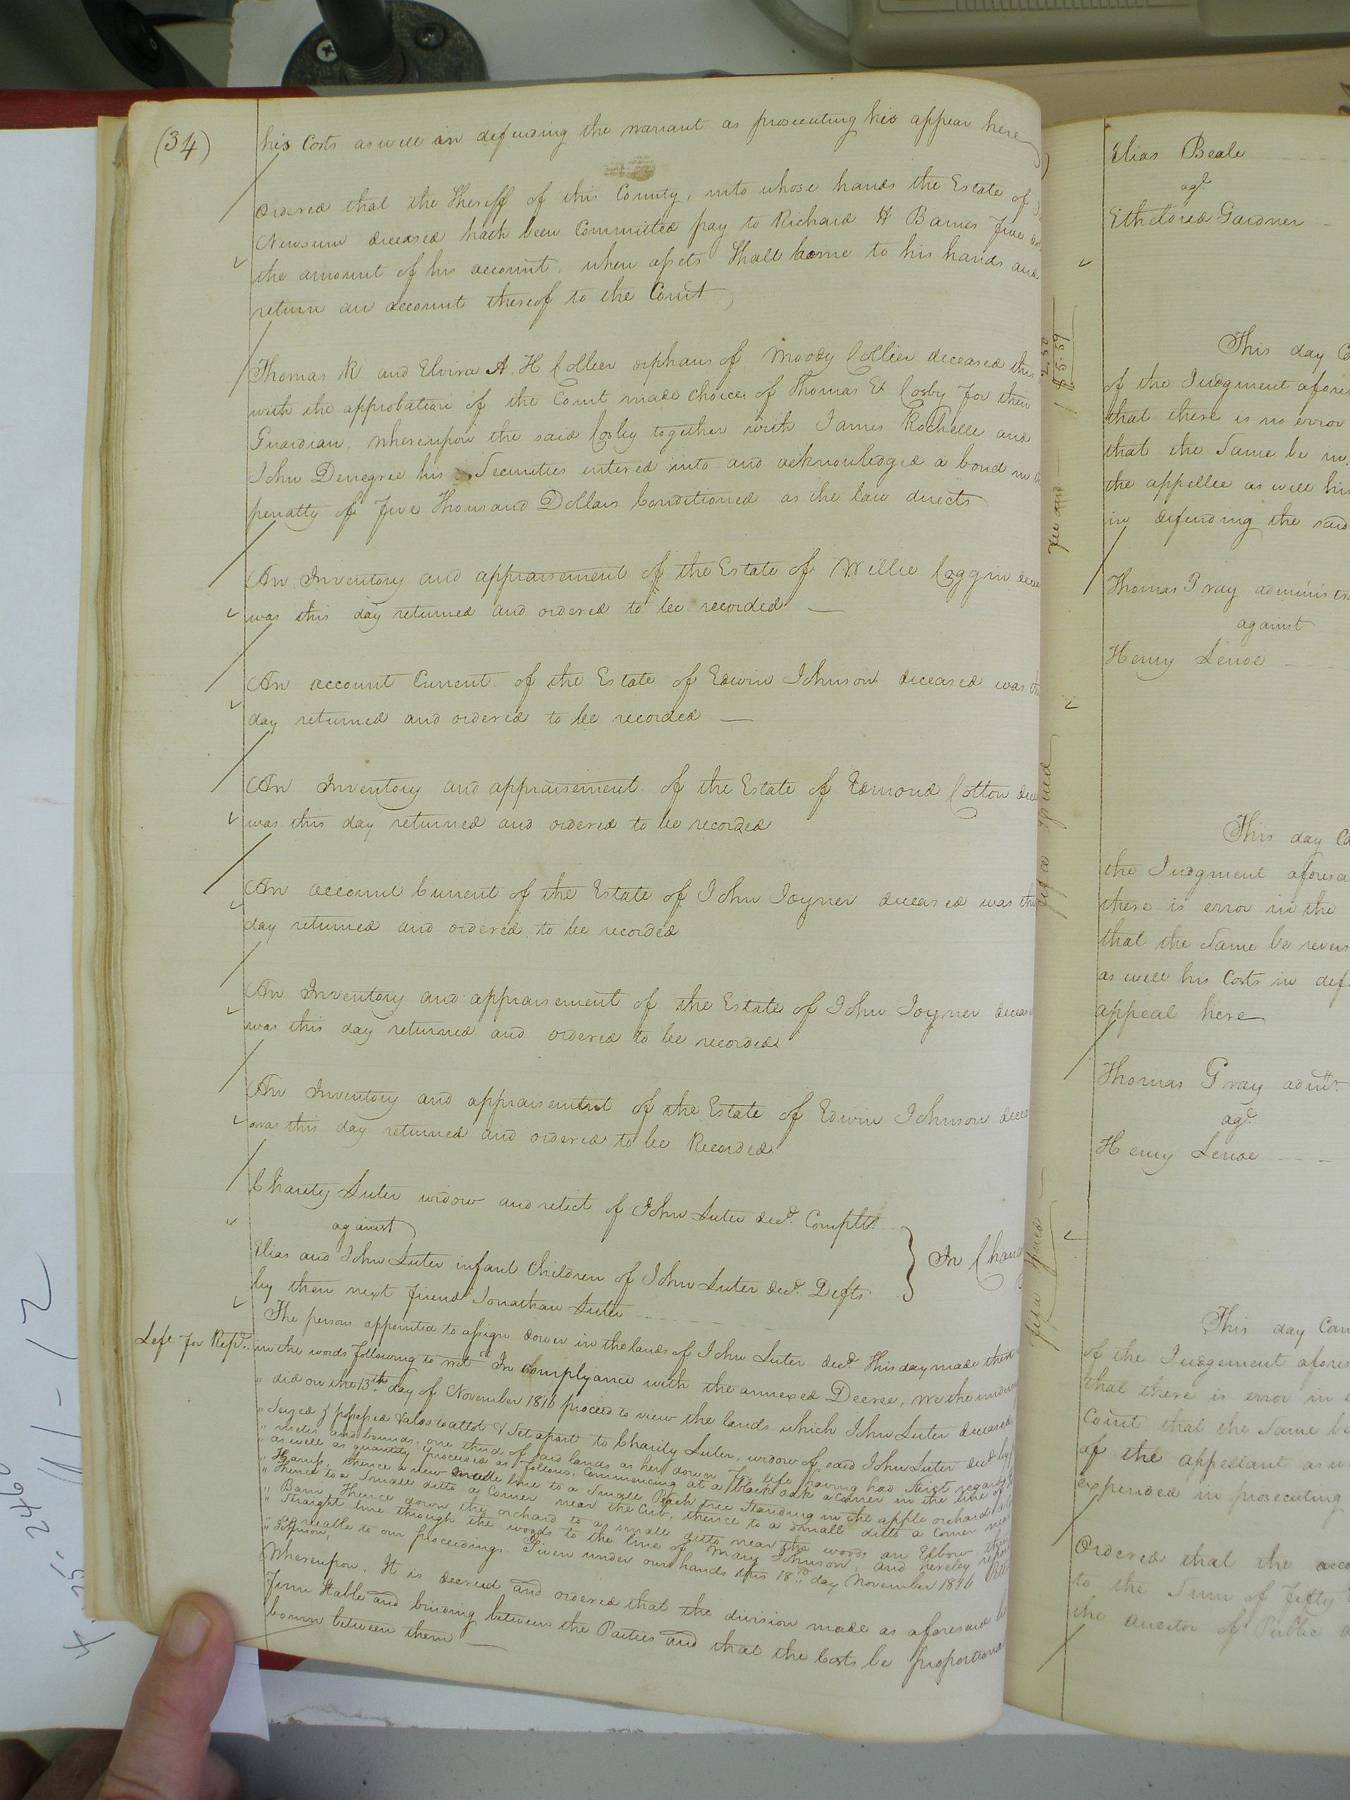 (34)
his Costs as well in defending the warrant as prosecuting his appear here
Ordered that the Sheriff of this County, into whose hands the Estate of
Newsum deceased hath been Committed pay to Richard H Barnes Five
the amount of his account, when assets Shall come to his hands and
return an account thereof to the Court
Thomas R and Elvira A. H Collier orphans of Moody Collier deceased this
with the approbation of the Court made choice of Thomas E Cosby for their
Guardian, whereupon the said Cosby together with James Rochelle and
John Denegree his Securities entered into and acknowledged a bond in
penalty of Five Thousand Dollars Conditioned as the law directs
An Inventory and appraisement of the Estate of Willie Coggin
was this day returned and ordered to be recorded
An account Current of the Estate of Edwin Johnson deceased was
day returned and ordered to be recorded
An Inventory and appraisement of the Estate of Edmond Cotton
was this day returned and ordered to be recorded
An account Current of the Estate of John Joyner deceased was this
day returned and ordered to be recorded
An Inventory and appraisement of the Estate of John Joyner
was this day returned and ordered to be recorded
An Inventory and appraisement of the Estate of Edwin Johnson
was this day returned and ordered to be Recorded
Charity Luter widow and relict of John Luter decd. Complt.
against
Elias and John Luter infant Children of John Luter decd. Defts
by their next friend Jonathan Luter
In Chan
The persons appointed to assign dower in the lands of John Luter decd This day made their
Left for Rept.
in the words following to wit "In complyance with the annexed Decree, we the
" did on the 13th day of November 1816 proceed to view the lands which John Luter deceased
" Seized & possessed & also to allot & Set apart to Charity Luter, widow of said John Luter decd by
" metes and bounds, one third of said lands as her dower for life having had strict regard to
" as well as quantity, proceeded as follows, Commencing at a black oak a corner in the line of
" thence a new line to a Small Peach tree Standing in the apple orchard
" Thence to a Small ditto a Corner near the Cut, thence to a Small ditto a Corner near
" Barn, thence down the orchard to a small ditto near the woods an Elbow
" Straight line through the woods to the line of Mary Johnson, and hereby report
" to our proceedings. Given under our hands this 18th day November 1816
" Johnson,
Whereupon, It is decreed and ordered that the division made as aforesaid be
Firm Stable and binding between the Parties and that the Costs be proportiona
bourn between them
2.50
$5.59
Elias Beale
agt
Etheldred Gardner
This day
of the Judgment afores
that there is no error
that the Same be in
the appellee as well his
in defending the said
Thomas Gray administ
against
Henry Lenoe
This day Ca
the Judgment aforesa
there is error in the
that the Same be revers
as well his Costs in def
appeal here
Thomas Gray admtr.
agt
Henry Lenoe
This day Cam
of the Judgement afores
that there is error in
Court that the Same be
of the appellant as w
expended in prosecuting
Ordered that the
to the Sum of Fifty
the auditor of Public